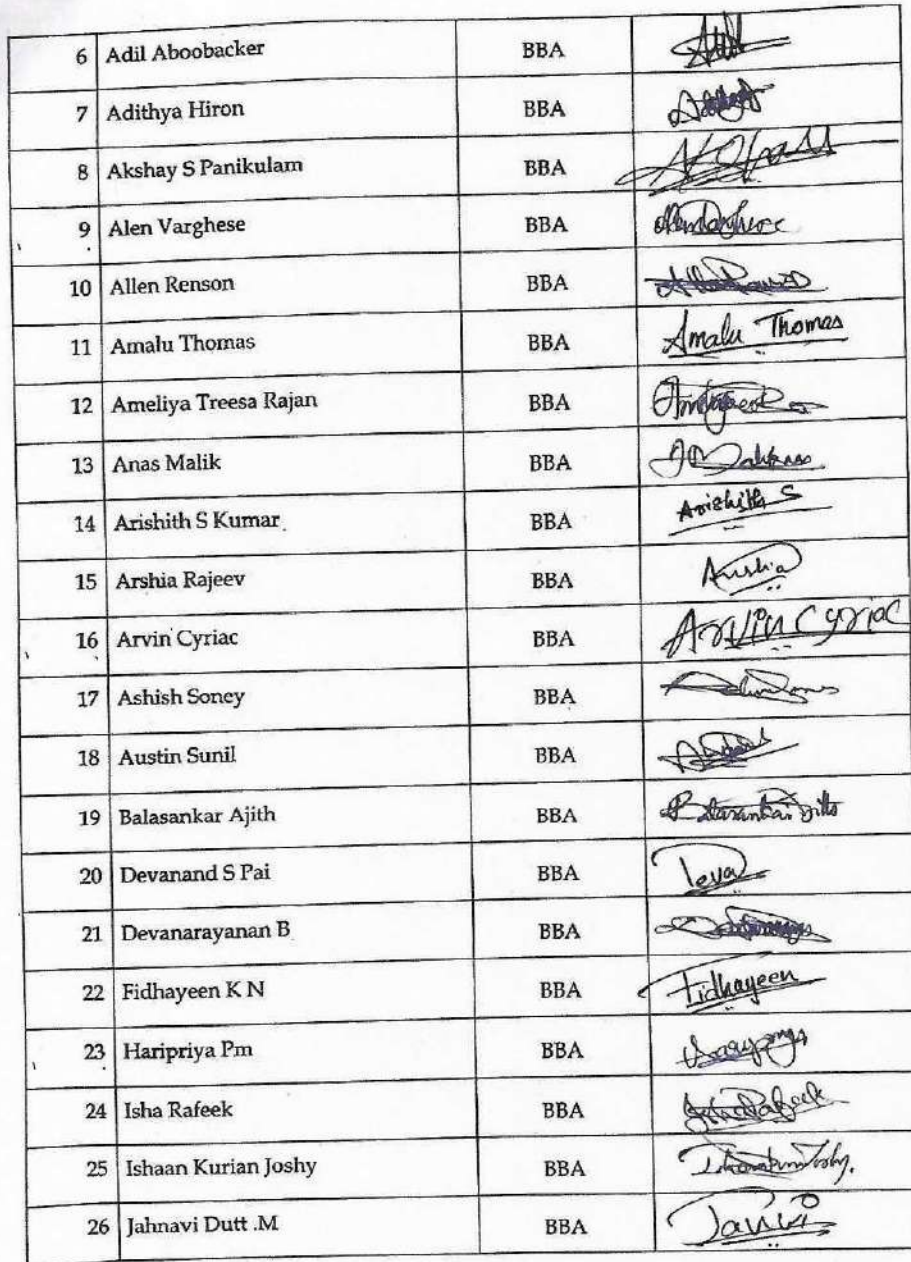 6 Adil Aboobacker BBA
7 Adithya Hiron BBA
8 Akshay S Panikulam BBA
9 Alen Varghese BBA
10 Allen Renson BBA
11 Amalu Thomas BBA Amalu Thomas
12 Ameliya Treesa Rajan BBA
13 Anas Malik BBA
14 Arishith S Kumar BBA Arishith S
15 Arshia Rajeev BBA Arshia
16 Arvin Cyriac BBA Arvin Cyriac
17 Ashish Soney BBA
18 Austin Sunil BBA
19 Balasankar Ajith BBA
20 Devanand S Pai BBA Deva
21 Devanarayanan B BBA
22 Fidhayeen K N BBA Fidhayeen
23 Haripriya Pm BBA
24 Isha Rafeek BBA
25 Ishaan Kurian Joshy BBA
26 Jahnavi Dutt .M BBA